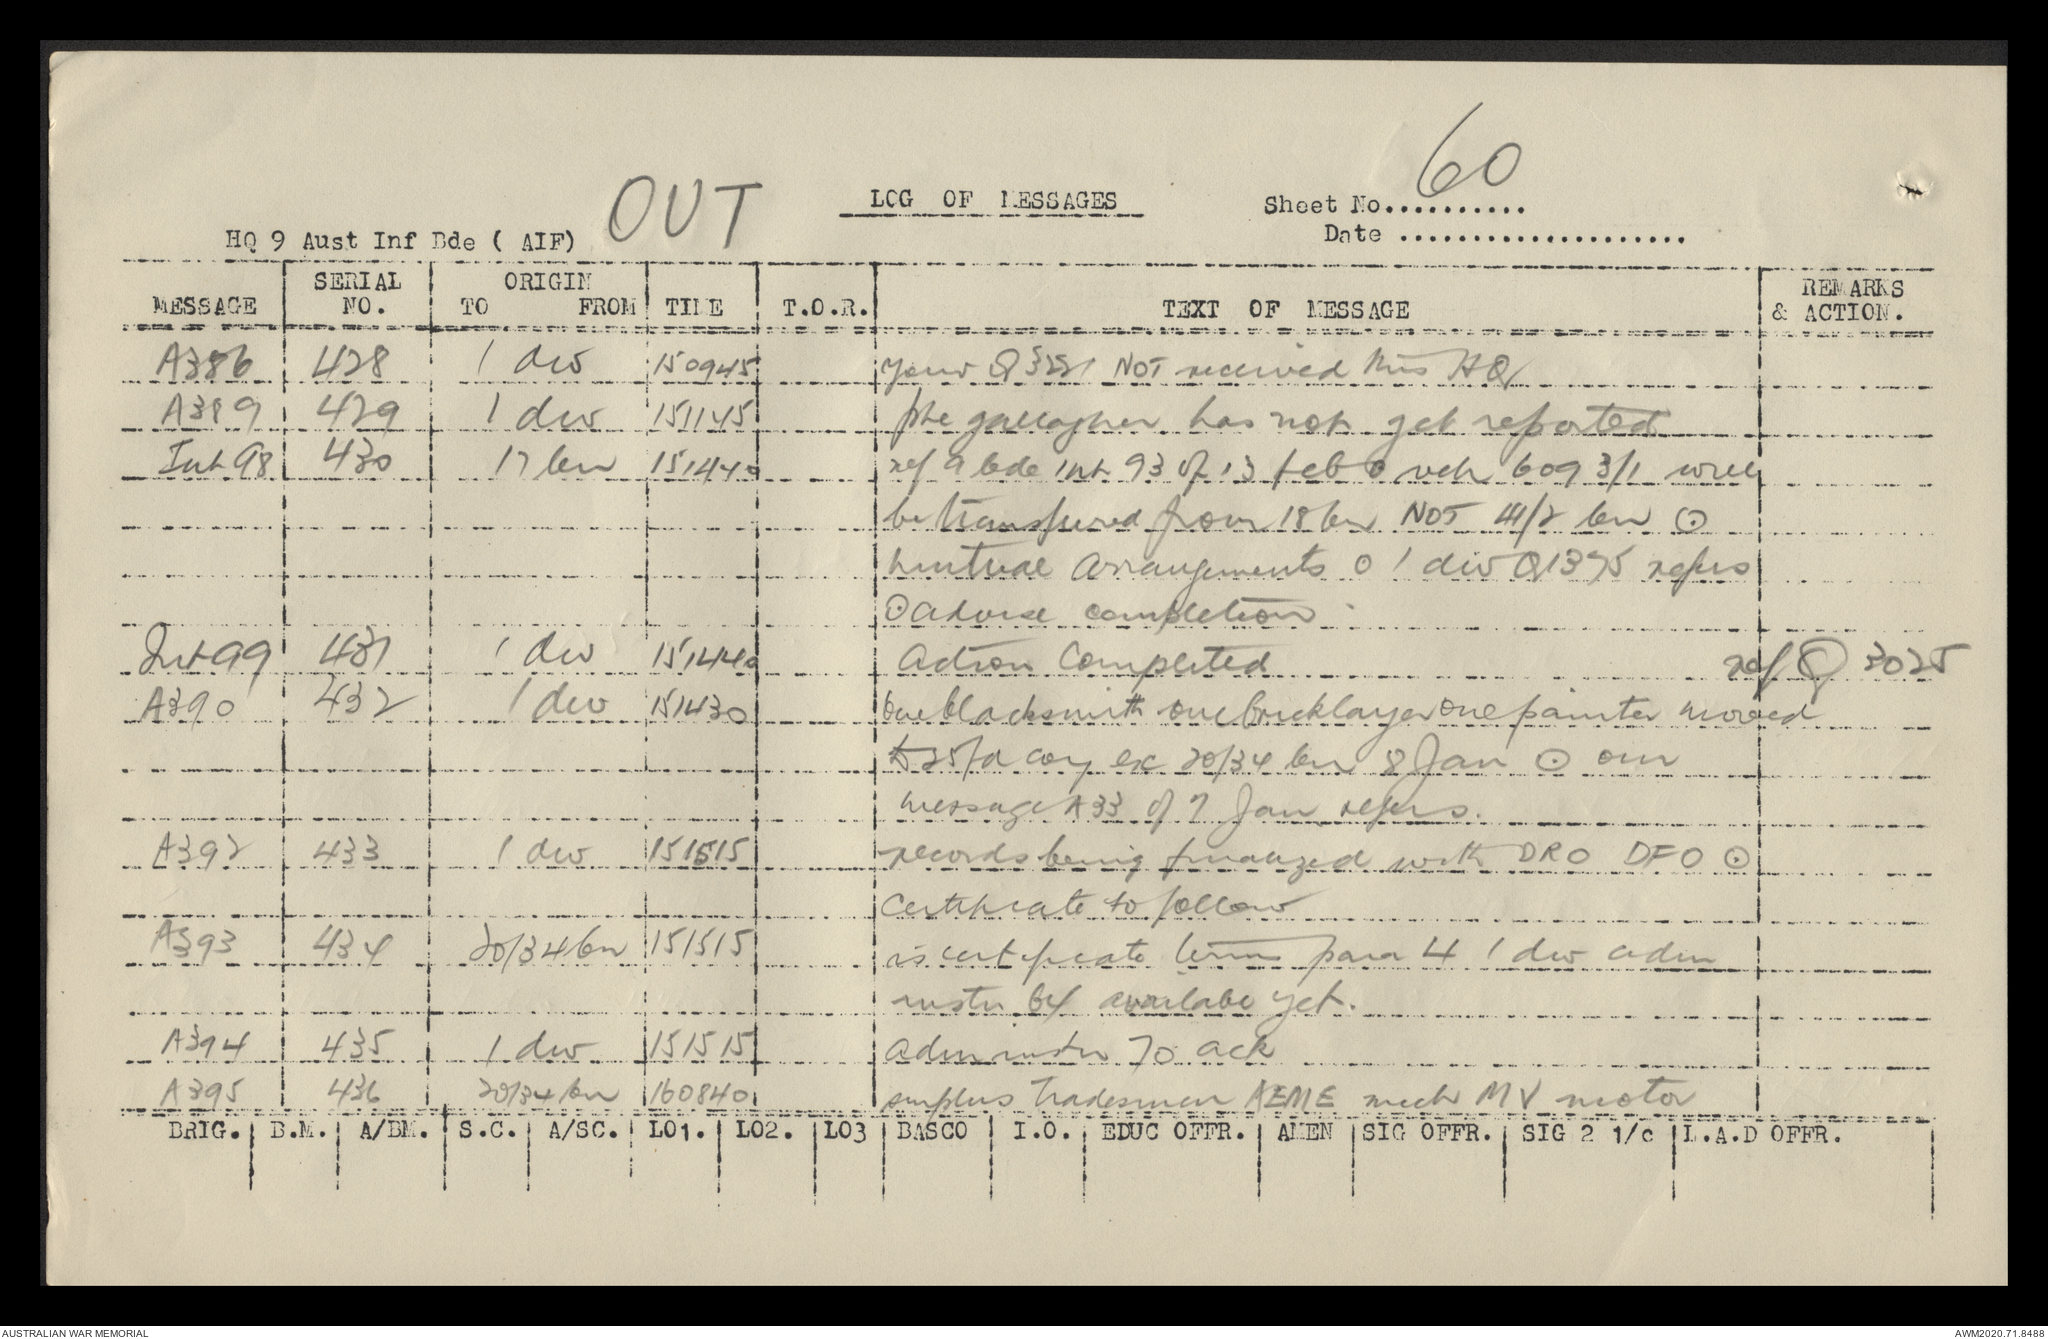 OUT
LOG OF MESSAGES
60
Sheet No..........
HQ 9 Aust Inf Bde ( AIF)
Date ....................
MESSAGE SERIAL NO. ORIGIN TO FROM TIME T.O.R. TEXT OF MESSAGE REMARKS & ACTION.
A386 428 1 div 150945 your Q3221 NOT received this HQ
A389 429 1 div 151145 pte gallagher has not yet reported
Int 98 430 17 bn 151440 ref 9 bde Int 93 of 13 feb ⊙ veh 6093/1 will
be transferred from 18 bn NOT 41/2 bn ⊙
mutual arrangements ⊙ 1 div Q1375 refers
⊙ advise completion
Int 99 431 1 div 151440 action completed ref Q 3025
A390 432 1 div 151430 One blacksmith one bricklayer one painter moved
to 25 fd coy ex 20/34 bn 8 Jan ⊙ our
message A33 of 7 Jan refers.
A392 433 1 div 151515 records being finalized with DRO DFO ⊙
Certificate to follow
A393 434 20/34 bn 151515 is certificate terms para 4 1 div adm
instn 64 availabe yet.
A394 435 1 div 151515 adm instn 70 ack
A395 436 20/34 bn 160840 surplus tradesmen AEME mech MV motor
BRIG. B.M. A/BM. S.C. A/SC. LO1. LO2. LO3 BASCO I.O. EDUC OFFR. AMEN SIG OFFR. SIG 2 1/c L.A.D OFFR.
AUSTRALIAN WAR MEMORIAL
AWM2020.71.8488